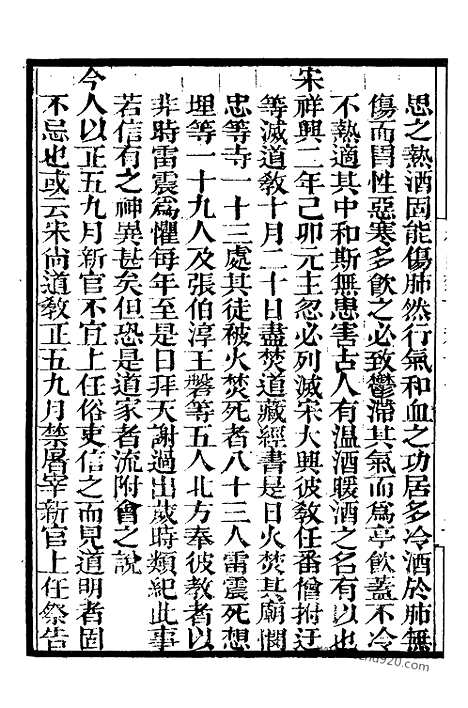 思之熱酒固能傷肺然行氣和血之功居多冷酒於肺無
傷而胃性惡寒多飲之必致鬱滯其氣而爲亭飲蓋不冷
不熱適其中和斯無患害古人有温酒暖酒之名有以也
宋祥興二年己卯元主忽必列滅宋大興彼敎任番僧拊迂
等滅道敎十月二十日盡焚道藏經書是日火焚其廟憫
忠等寺一十三處其徒被火焚死者八十三人雷震死想
埋等一十九人及張伯淳王磐等五人北方奉彼敎者以
非時雷震爲懼每年至是日拜天謝過出歲時類紀此事
若信有之神異甚矣但恐是道家者流附會之說
今人以正五九月新官不宜上任俗吏信之而見道明者固
不忌也或云宋尙道敎正五九月禁屠宰新官上任祭告